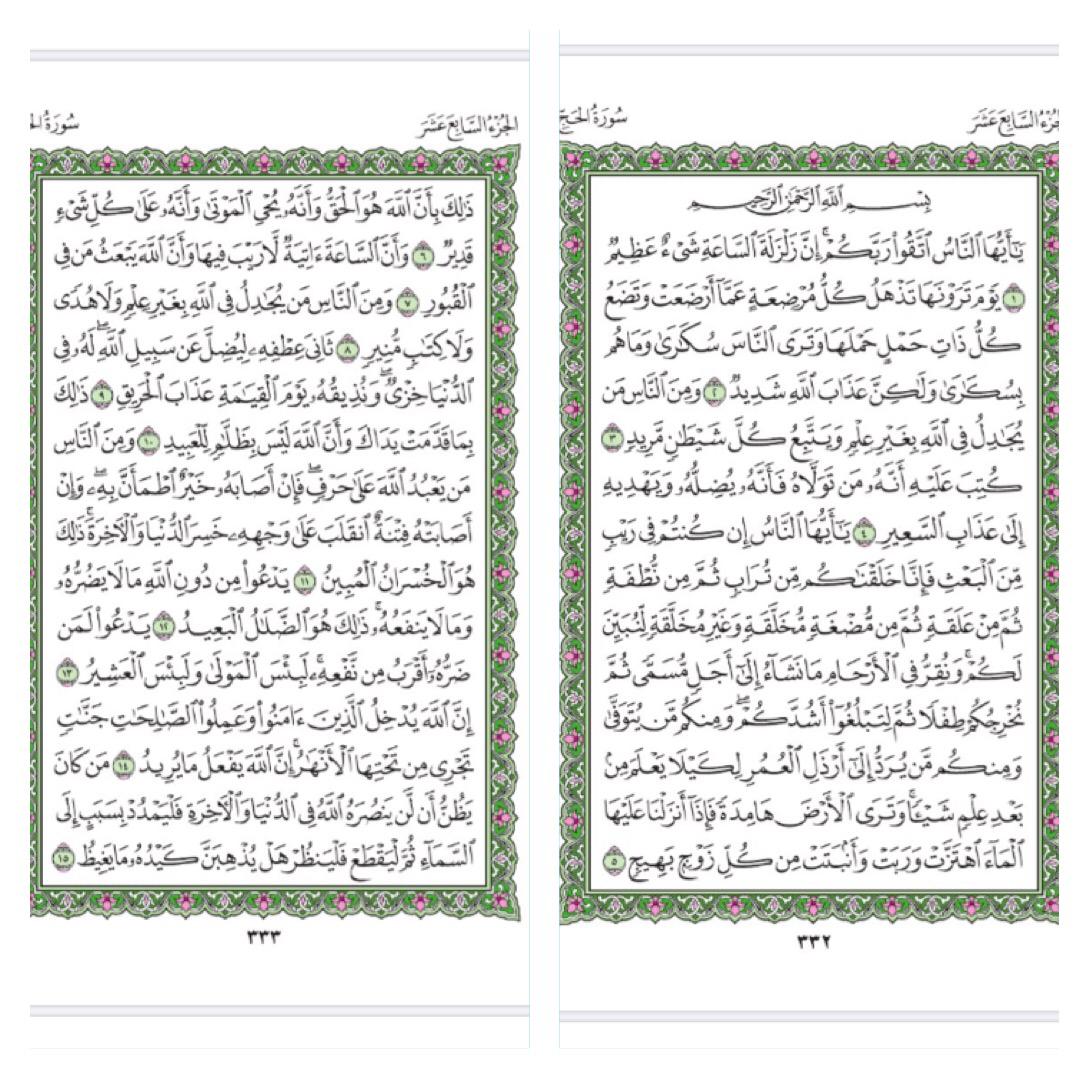 الجزء السابع عشر
سورة الحج
بِسْمِ ٱللَّهِ ٱلرَّحْمَٰنِ ٱلرَّحِيمِ
يَٰٓأَيُّهَا ٱلنَّاسُ ٱتَّقُوا۟ رَبَّكُمْ ۚ إِنَّ زَلْزَلَةَ ٱلسَّاعَةِ شَىْءٌ عَظِيمٌ
١ يَوْمَ تَرَوْنَهَا تَذْهَلُ كُلُّ مُرْضِعَةٍ عَمَّآ أَرْضَعَتْ وَتَضَعُ
كُلُّ ذَاتِ حَمْلٍ حَمْلَهَا وَتَرَى ٱلنَّاسَ سُكَٰرَىٰ وَمَا هُم
بِسُكَٰرَىٰ وَلَٰكِنَّ عَذَابَ ٱللَّهِ شَدِيدٌ ٢ وَمِنَ ٱلنَّاسِ مَن
يُجَٰدِلُ فِى ٱللَّهِ بِغَيْرِ عِلْمٍ وَيَتَّبِعُ كُلَّ شَيْطَٰنٍ مَّرِيدٍ ٣
كُتِبَ عَلَيْهِ أَنَّهُۥ مَن تَوَلَّاهُ فَأَنَّهُۥ يُضِلُّهُۥ وَيَهْدِيهِ
إِلَىٰ عَذَابِ ٱلسَّعِيرِ ٤ يَٰٓأَيُّهَا ٱلنَّاسُ إِن كُنتُمْ فِى رَيْبٍ
مِّنَ ٱلْبَعْثِ فَإِنَّا خَلَقْنَٰكُم مِّن تُرَابٍ ثُمَّ مِن نُّطْفَةٍ
ثُمَّ مِنْ عَلَقَةٍ ثُمَّ مِن مُّضْغَةٍ مُّخَلَّقَةٍ وَغَيْرِ مُخَلَّقَةٍ لِّنُبَيِّنَ
لَكُمْ ۚ وَنُقِرُّ فِى ٱلْأَرْحَامِ مَا نَشَآءُ إِلَىٰٓ أَجَلٍ مُّسَمًّى ثُمَّ
نُخْرِجُكُمْ طِفْلًا ثُمَّ لِتَبْلُغُوٓا۟ أَشُدَّكُمْ ۖ وَمِنكُم مَّن يُتَوَفَّىٰ
وَمِنكُم مَّن يُرَدُّ إِلَىٰٓ أَرْذَلِ ٱلْعُمُرِ لِكَيْلَا يَعْلَمَ مِنۢ
بَعْدِ عِلْمٍ شَيْـًٔا ۚ وَتَرَى ٱلْأَرْضَ هَامِدَةً فَإِذَآ أَنزَلْنَا عَلَيْهَا
ٱلْمَآءَ ٱهْتَزَّتْ وَرَبَتْ وَأَنۢبَتَتْ مِن كُلِّ زَوْجٍۭ بَهِيجٍ ٥
٣٣٢
الجزء السابع عشر
سورة
ذَٰلِكَ بِأَنَّ ٱللَّهَ هُوَ ٱلْحَقُّ وَأَنَّهُۥ يُحْىِ ٱلْمَوْتَىٰ وَأَنَّهُۥ عَلَىٰ كُلِّ شَىْءٍ
قَدِيرٌ ٦ وَأَنَّ ٱلسَّاعَةَ ءَاتِيَةٌ لَّا رَيْبَ فِيهَا وَأَنَّ ٱللَّهَ يَبْعَثُ مَن فِى
ٱلْقُبُورِ ٧ وَمِنَ ٱلنَّاسِ مَن يُجَٰدِلُ فِى ٱللَّهِ بِغَيْرِ عِلْمٍ وَلَا هُدًى
وَلَا كِتَٰبٍ مُّنِيرٍ ٨ ثَانِىَ عِطْفِهِۦ لِيُضِلَّ عَن سَبِيلِ ٱللَّهِ ۖ لَهُۥ فِى
ٱلدُّنْيَا خِزْىٌ ۖ وَنُذِيقُهُۥ يَوْمَ ٱلْقِيَٰمَةِ عَذَابَ ٱلْحَرِيقِ ٩ ذَٰلِكَ
بِمَا قَدَّمَتْ يَدَاكَ وَأَنَّ ٱللَّهَ لَيْسَ بِظَلَّٰمٍ لِّلْعَبِيدِ ١٠ وَمِنَ ٱلنَّاسِ
مَن يَعْبُدُ ٱللَّهَ عَلَىٰ حَرْفٍ ۖ فَإِنْ أَصَابَهُۥ خَيْرٌ ٱطْمَأَنَّ بِهِۦ ۖ وَإِنْ
أَصَابَتْهُ فِتْنَةٌ ٱنقَلَبَ عَلَىٰ وَجْهِهِۦ خَسِرَ ٱلدُّنْيَا وَٱلْءَاخِرَةَ ۚ ذَٰلِكَ
هُوَ ٱلْخُسْرَانُ ٱلْمُبِينُ ١١ يَدْعُوا۟ مِن دُونِ ٱللَّهِ مَا لَا يَضُرُّهُۥ
وَمَا لَا يَنفَعُهُۥ ۚ ذَٰلِكَ هُوَ ٱلضَّلَٰلُ ٱلْبَعِيدُ ١٢ يَدْعُوا۟ لَمَن
ضَرُّهُۥٓ أَقْرَبُ مِن نَّفْعِهِۦ ۚ لَبِئْسَ ٱلْمَوْلَىٰ وَلَبِئْسَ ٱلْعَشِيرُ ١٣
إِنَّ ٱللَّهَ يُدْخِلُ ٱلَّذِينَ ءَامَنُوا۟ وَعَمِلُوا۟ ٱلصَّٰلِحَٰتِ جَنَّٰتٍ
تَجْرِى مِن تَحْتِهَا ٱلْأَنْهَٰرُ ۚ إِنَّ ٱللَّهَ يَفْعَلُ مَا يُرِيدُ ١٤ مَن كَانَ
يَظُنُّ أَن لَّن يَنصُرَهُ ٱللَّهُ فِى ٱلدُّنْيَا وَٱلْءَاخِرَةِ فَلْيَمْدُدْ بِسَبَبٍ إِلَى
ٱلسَّمَآءِ ثُمَّ لْيَقْطَعْ فَلْيَنظُرْ هَلْ يُذْهِبَنَّ كَيْدُهُۥ مَا يَغِيظُ ١٥
٣٣٣